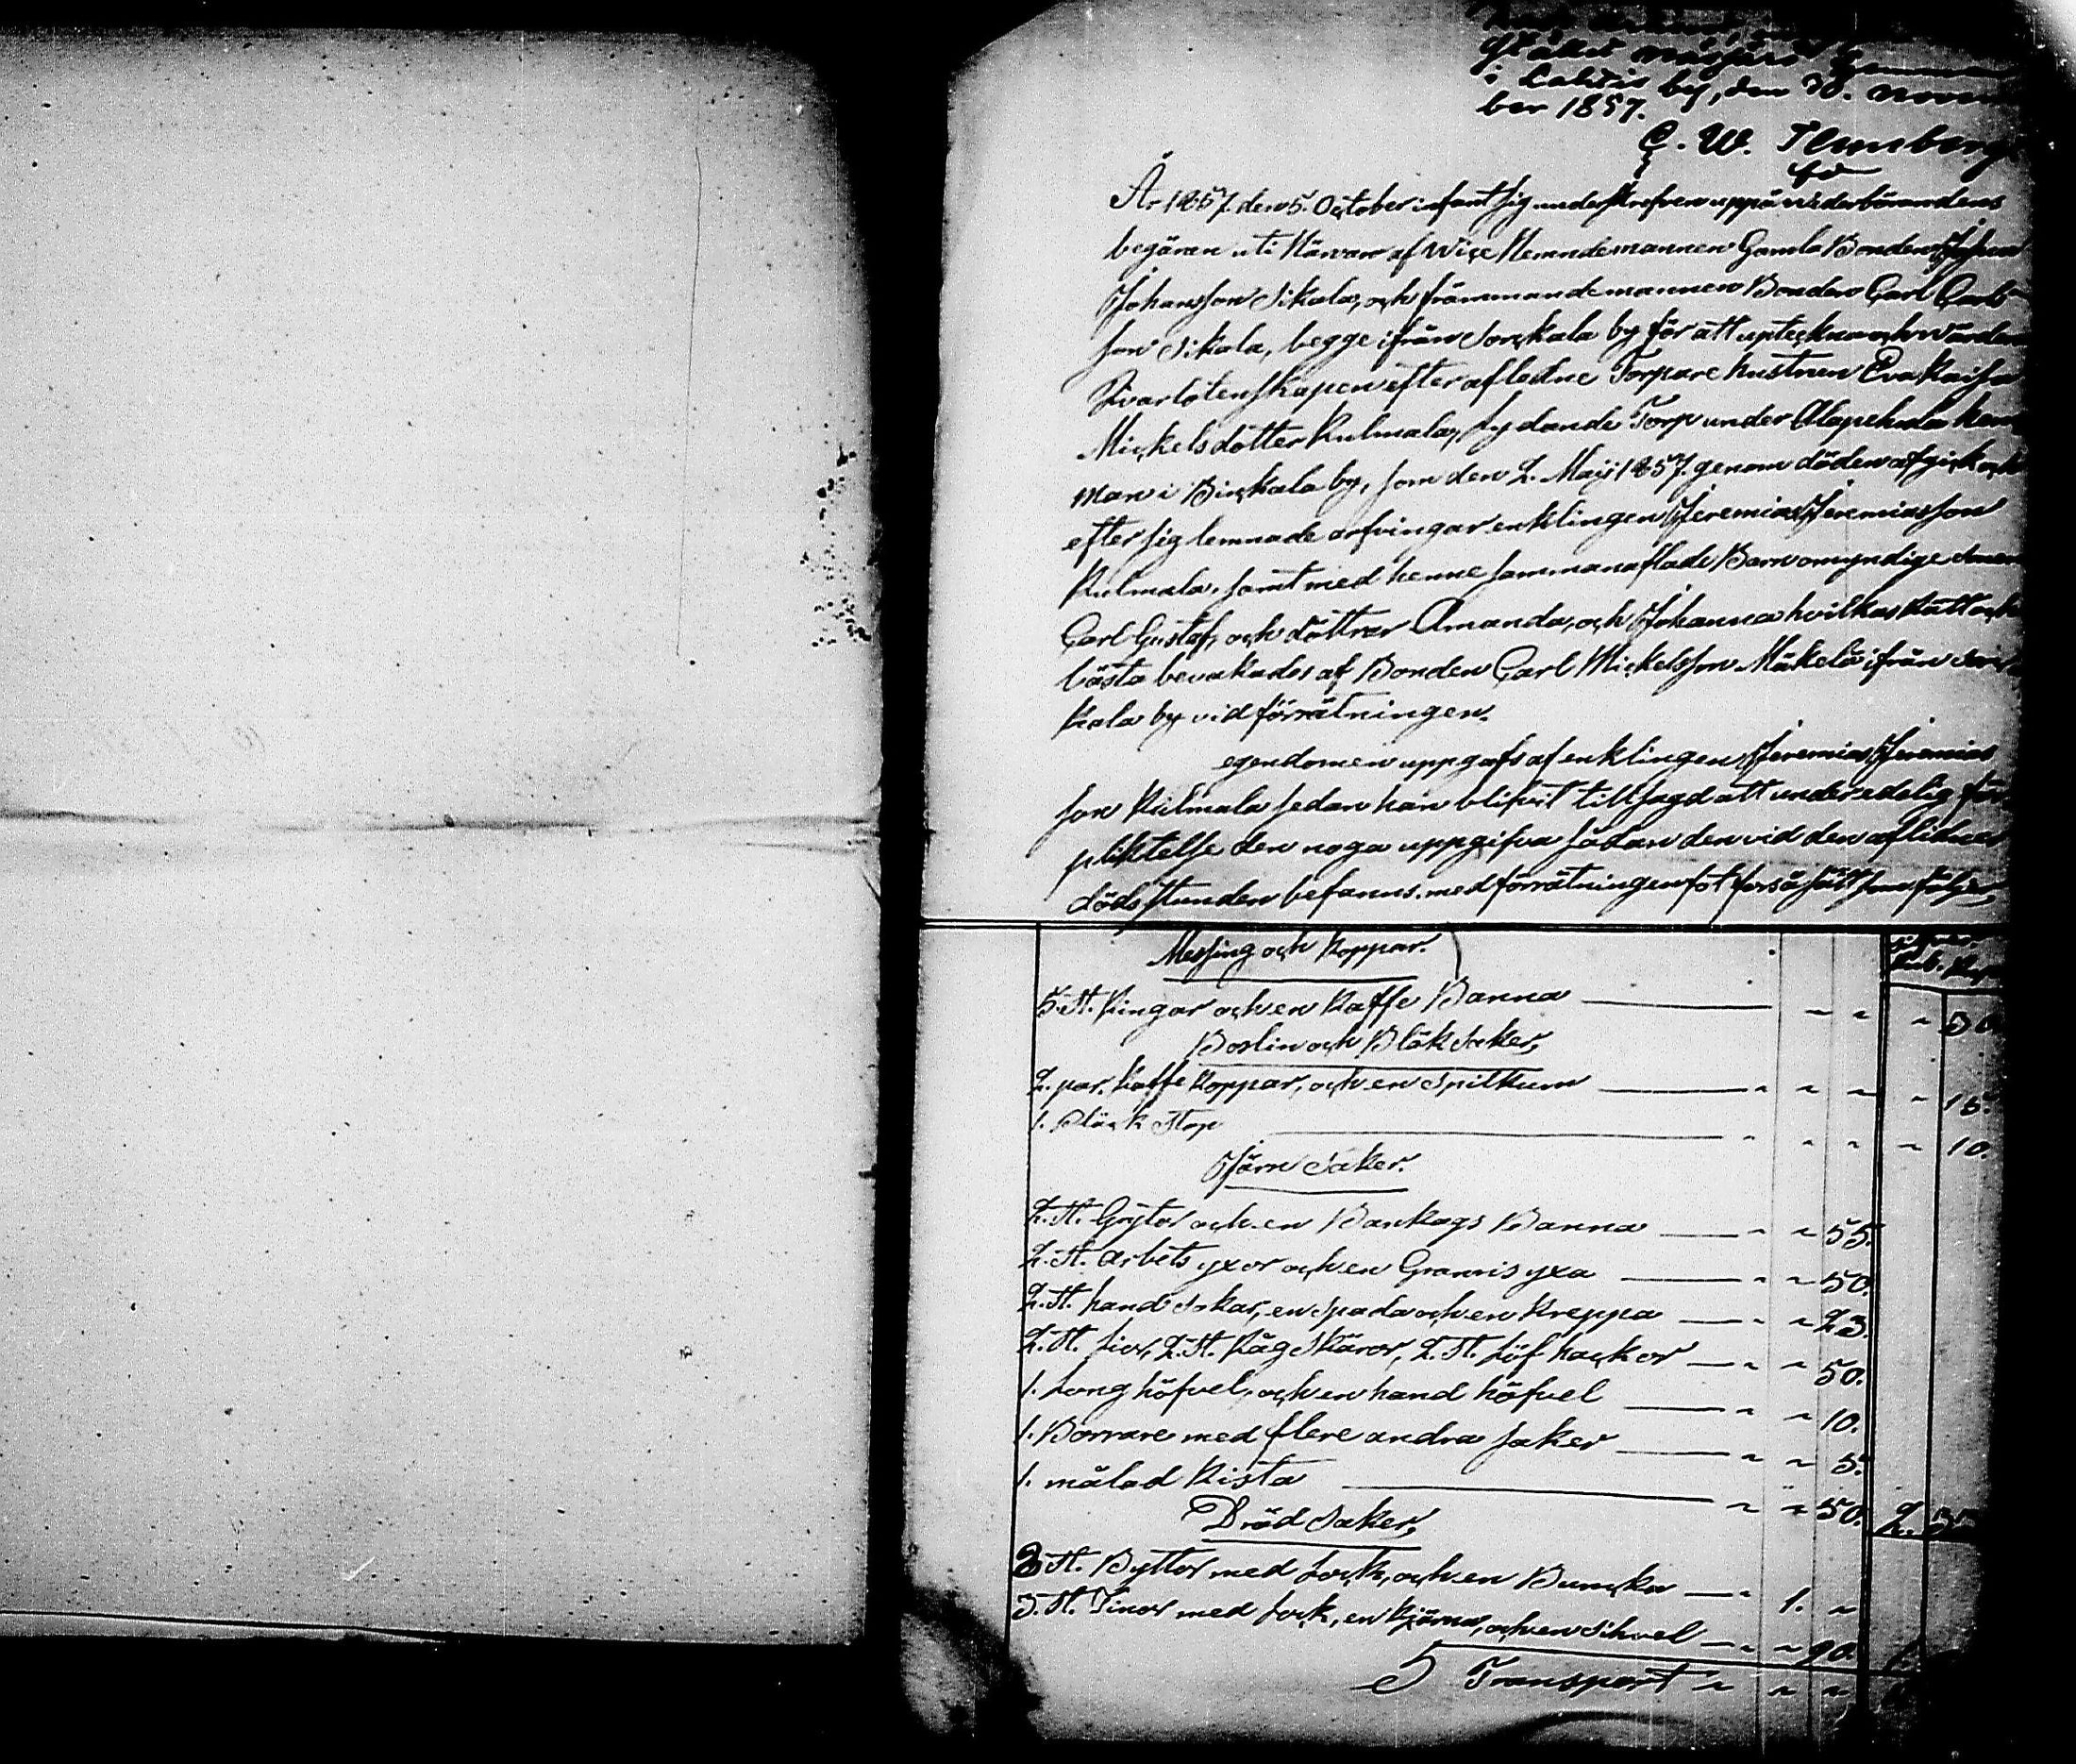 i Lahtis by, den 30. novem
ber 1857.
C. W.
År 1857. den 5. October infant sig underskrefven uppå wederbörandens
begäran uti Närvaro af Wiçe Nemndemannen Gamla Bonden Johan
Johansson Sikala, och främmandemannen Bonden Carl Carls
son Sikala, begge ifrån Sorçkala by för att upteckna och värdera
Qvarlåtenskapen efter afledne Torpare hustrun Eva Kaisa
Mickelsdotter Kulmala, lydande Torp under Alapekola hem
man i Binkala by, som den 2. Maji 1857. genom döden afgick och
efter sig lemnade arfvingar enklingen Jeremias Jeremiasson
Kulmala, samt med henne sammanaflade Barn omyndige sonen
Carl Gustaf, och döttrar Amanda, och Johanna hvilkas Rätt och
bästa bevakades af Bonden Carl Mickelsson Mäkelä ifrån
kala by vid förrätningen.
egendomen uppgafs af enklingen Jeremias Jeremias
son Kulmala sedan han blifvit tillsagd att under edelig för
pliktelse den noga uppgifva sådan den vid den aflidnes
dödsstunden befanns. med förrätningen fortfors å sätt som följer,
Messing och Koppar.
Rub. Kop
5. st. Ringar och en Kaffe Panna " " " 50
Poslin och Bläk Saker,
2. par. Kaffe Koppar, och en Spilkum " " " " 15.
1. Bläck Stop " " " " 10.
Järn Saker.
2. st. Grytor och en Bankags Panna " " 55.
2. st. Arbets yxor och en Granris yxa " " 50.
2. st. hand Sakar, en Spada och en Kreppa " " 23.
2. st. Lior, 2. st. Råg Skäror, 2. st. Löf hackor " " 50.
1. Lång höfvel, och en hand höfvel " " 10.
1. Borrare med flere andra saker " " 5.
1. målad Kista " " 50. 2.
Träd Saker,
3 st. Byttor med Lock, och en Buncka " 1. "
5. st. Tinor med Lock, en Kjärna, och en Sihvel " " 90.
Transport " " "